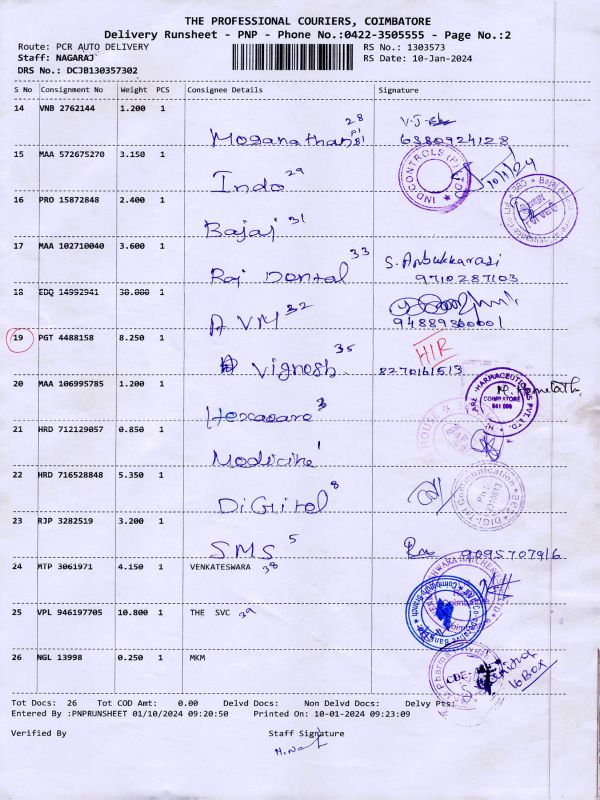 THE PROFESSIONAL COURIERS, COIMBATORE
Delivery Runsheet - PNP - Phone No.:0422-3505555 - Page No.:2
Route: PCR AUTO DELIVERY RS No.: 1303573
Staff: NAGARAJ RS Date: 10-Jan-2024
DRS No.: DCJB130357302
S No Consignment No Weight PCS Consignee Details Signature
14 VNB 2762144 1.200 1
28 V.J.
6380924128
15 MAA 572675270 3.150 1
Indo 29 IND-CONTROLS (P) LTD 10/1/24
16 PRO 15872848 2.400 1
Bajaj 31
17 MAA 102710040 3.600 1
Raj Dental 33 S. Anbukkarasi
9710287103
18 EDQ 14992941 30.000 1
AVM 32
19 PGT 4488158 8.250 1
Vignesh 35 HIR
20 MAA 106995785 1.200 1
3 COIMBATORE
21 HRD 712129057 0.850 1
Medicine 1
22 HRD 716528848 5.350 1
Digital 8
23 RJP 3282519 3.200 1
SMS 5 9095707916
24 MTP 3061971 4.150 1 VENKATESWARA 38
25 VPL 946197705 10.800 1 THE SVC 39
26 NGL 13998 0.250 1 MKM
CBE
Tot Docs: 26 Tot COD Amt: 0.00 Delvd Docs: Non Delvd Docs: Delvy Pts:
Entered By :PNPRUNSHEET 01/10/2024 09:20:50 Printed On: 10-01-2024 09:23:09
Verified By Staff Signature